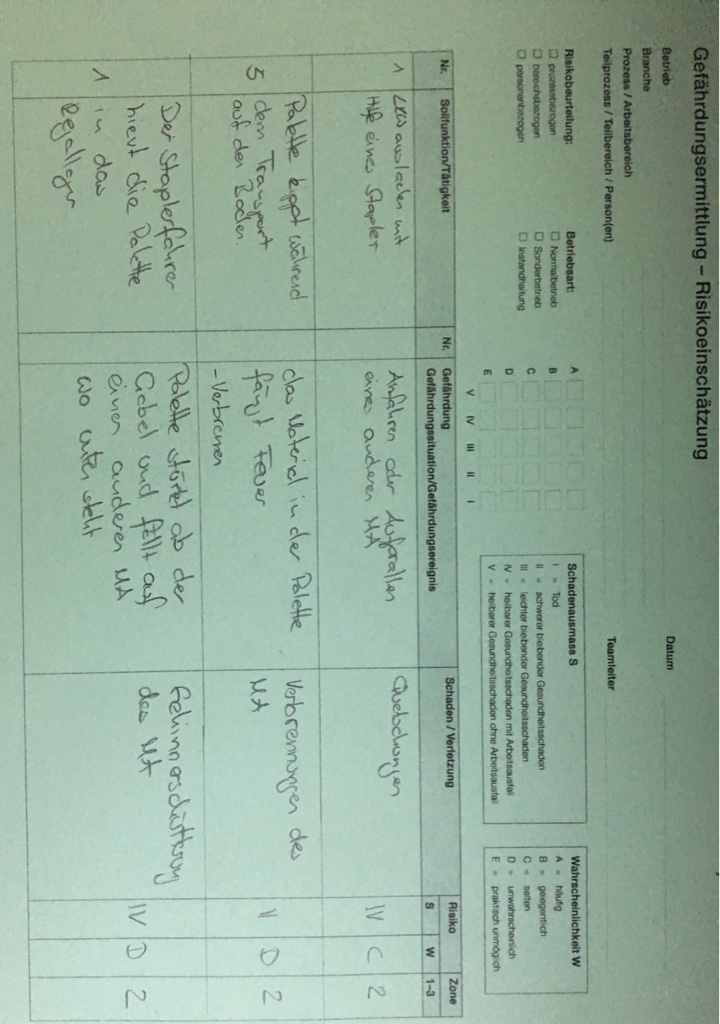 Gefährdungsermittlung – Risikoeinschätzung
Betrieb
Datum
Branche
Prozess / Arbeitsbereich
Teilprozess / Teilbereich / Person(en)
Teamleiter
Risikobeurteilung:
☐ prozessbezogen
☐ bereichsbezogen
☐ personenbezogen
Betriebsart:
☐ Normalbetrieb
☐ Sonderbetrieb
☐ Instandhaltung
A
B
C
D
E
V IV III II I
Schadenausmass S
I = Tod
II = schwerer bleibender Gesundheitsschaden
III = leichter bleibender Gesundheitsschaden
IV = heilbarer Gesundheitsschaden mit Arbeitsausfall
V = heilbarer Gesundheitsschaden ohne Arbeitsausfall
Wahrscheinlichkeit W
A = häufig
B = gelegentlich
C = selten
D = unwahrscheinlich
E = praktisch unmöglich
Nr. Sollfunktion/Tätigkeit Nr. Gefährdung Schaden / Verletzung Risiko Zone
Gefährdungssituation/Gefährdungsereignis S W 1–3
1 LKW ausladen mit
Hilfe eines Stapler
Anfahren oder Aufprallen
eines anderen MA
Quetschungen
IV C 2
5 Palette kippt während
dem Transport
auf den Boden.
das Material in der Palette
fängt Feuer
- Verbrennen
Verbrennungen des
MA
II D 2
1 Der Staplerfahrer
hievt die Palette
in das
Regallager
Palette stürtzt ab der
Gabel und fällt auf
einen anderen MA
wo unten steht
Gehirnerschütterung
des MA
IV D 2